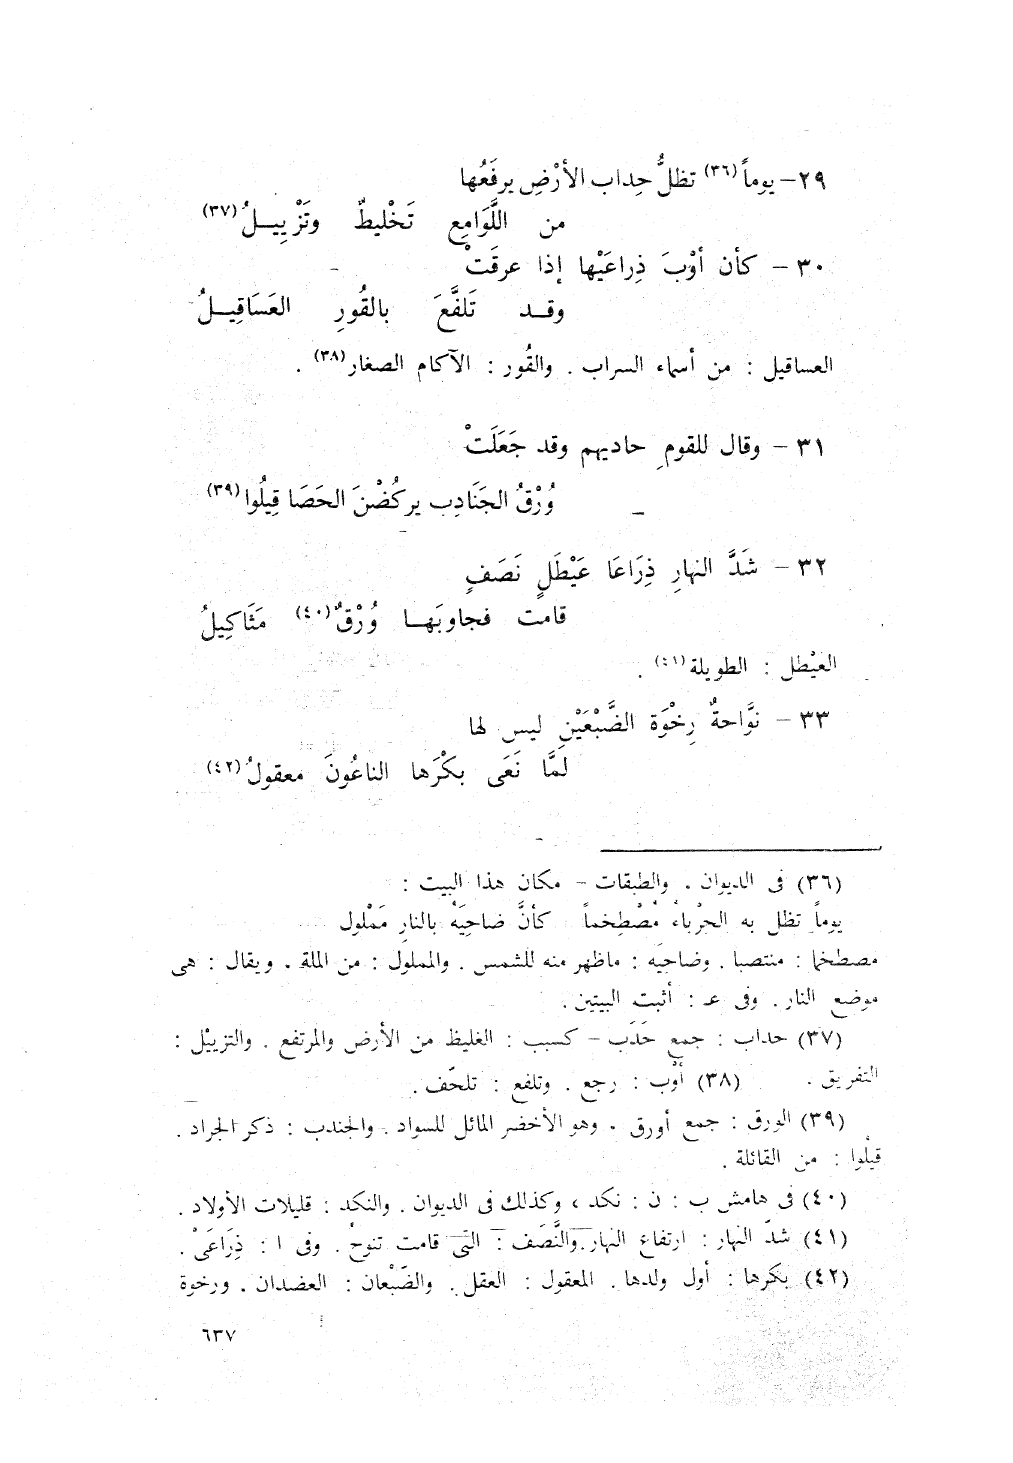 ٢٩ – يوماً (٣٦) تظلُّ حِداب الأرْضِ يرفَعُها
من اللَّوَامِع تَخْليطٌ وتَزْيِيــلُ (٣٧)
٣٠ – كأن أوْبَ ذِراعَيْها إذا عرقَتْ
وقــد تَلَفَّعَ بالقُورِ العَسَاقِيــلُ
العساقيل : من أسماء السراب . والقُور : الآكام الصغار (٣٨) .
٣١ – وقال للقومِ حاديهم وقد جَعَلَتْ
وُرْقُ الجَنَادِب يركُضْنَ الحَصَا قِيلُوا (٣٩)
٣٢ – شَدَّ النهارِ ذِرَاعَا عَيْطَلٍ نَصَفٍ
قامت فجاوبَهــا وُرْقٌ (٤٠) مَثَاكِيلُ
العَيْطل : الطويلة (٤١) .
٣٣ – نوَّاحةٌ رِخْوَة الضَّبْعَيْنِ ليس لها
لَمَّا نَعَى بكْرَها الناعُونَ معقولُ (٤٢)
(٣٦) فى الديوان . والطبقات – مكان هذا البيت :
يوماً تظل به الحرْباءُ مُصْطَخِماً كأنَّ ضاحِيَهُ بالنارِ مَمْلول
مصطخما : منتصبا . وضاحيَه : ماظهر منه للشمس . والمملول : من الملة . ويقال : هى
موضع النار . وفى عـ : أثبت البيتين .
(٣٧) حداب : جمع حَدَب – كسبب : الغليظ من الأرض والمرتفع . والتزييْل :
التفريق . (٣٨) أوْب : رجع . وتلفع : تلحّف .
(٣٩) الورق : جمع أورق . وهو الأخضر المائل للسواد . والجندب : ذكر الجراد .
قيلُوا : من القائلة .
(٤٠) فى هامش ب : ن : نكد ، وكذلك فى الديوان . والنكد : قليلات الأولاد .
(٤١) شدّ النهار : ارتفاع النهار . والنَّصَف : التى قامت تنوحُ . وفى ا : ذِرَاعَىْ .
(٤٢) بكرها : أول ولدها . المعقول : العقل . والضّبْعان : العضدان . ورخوة
٦٣٧